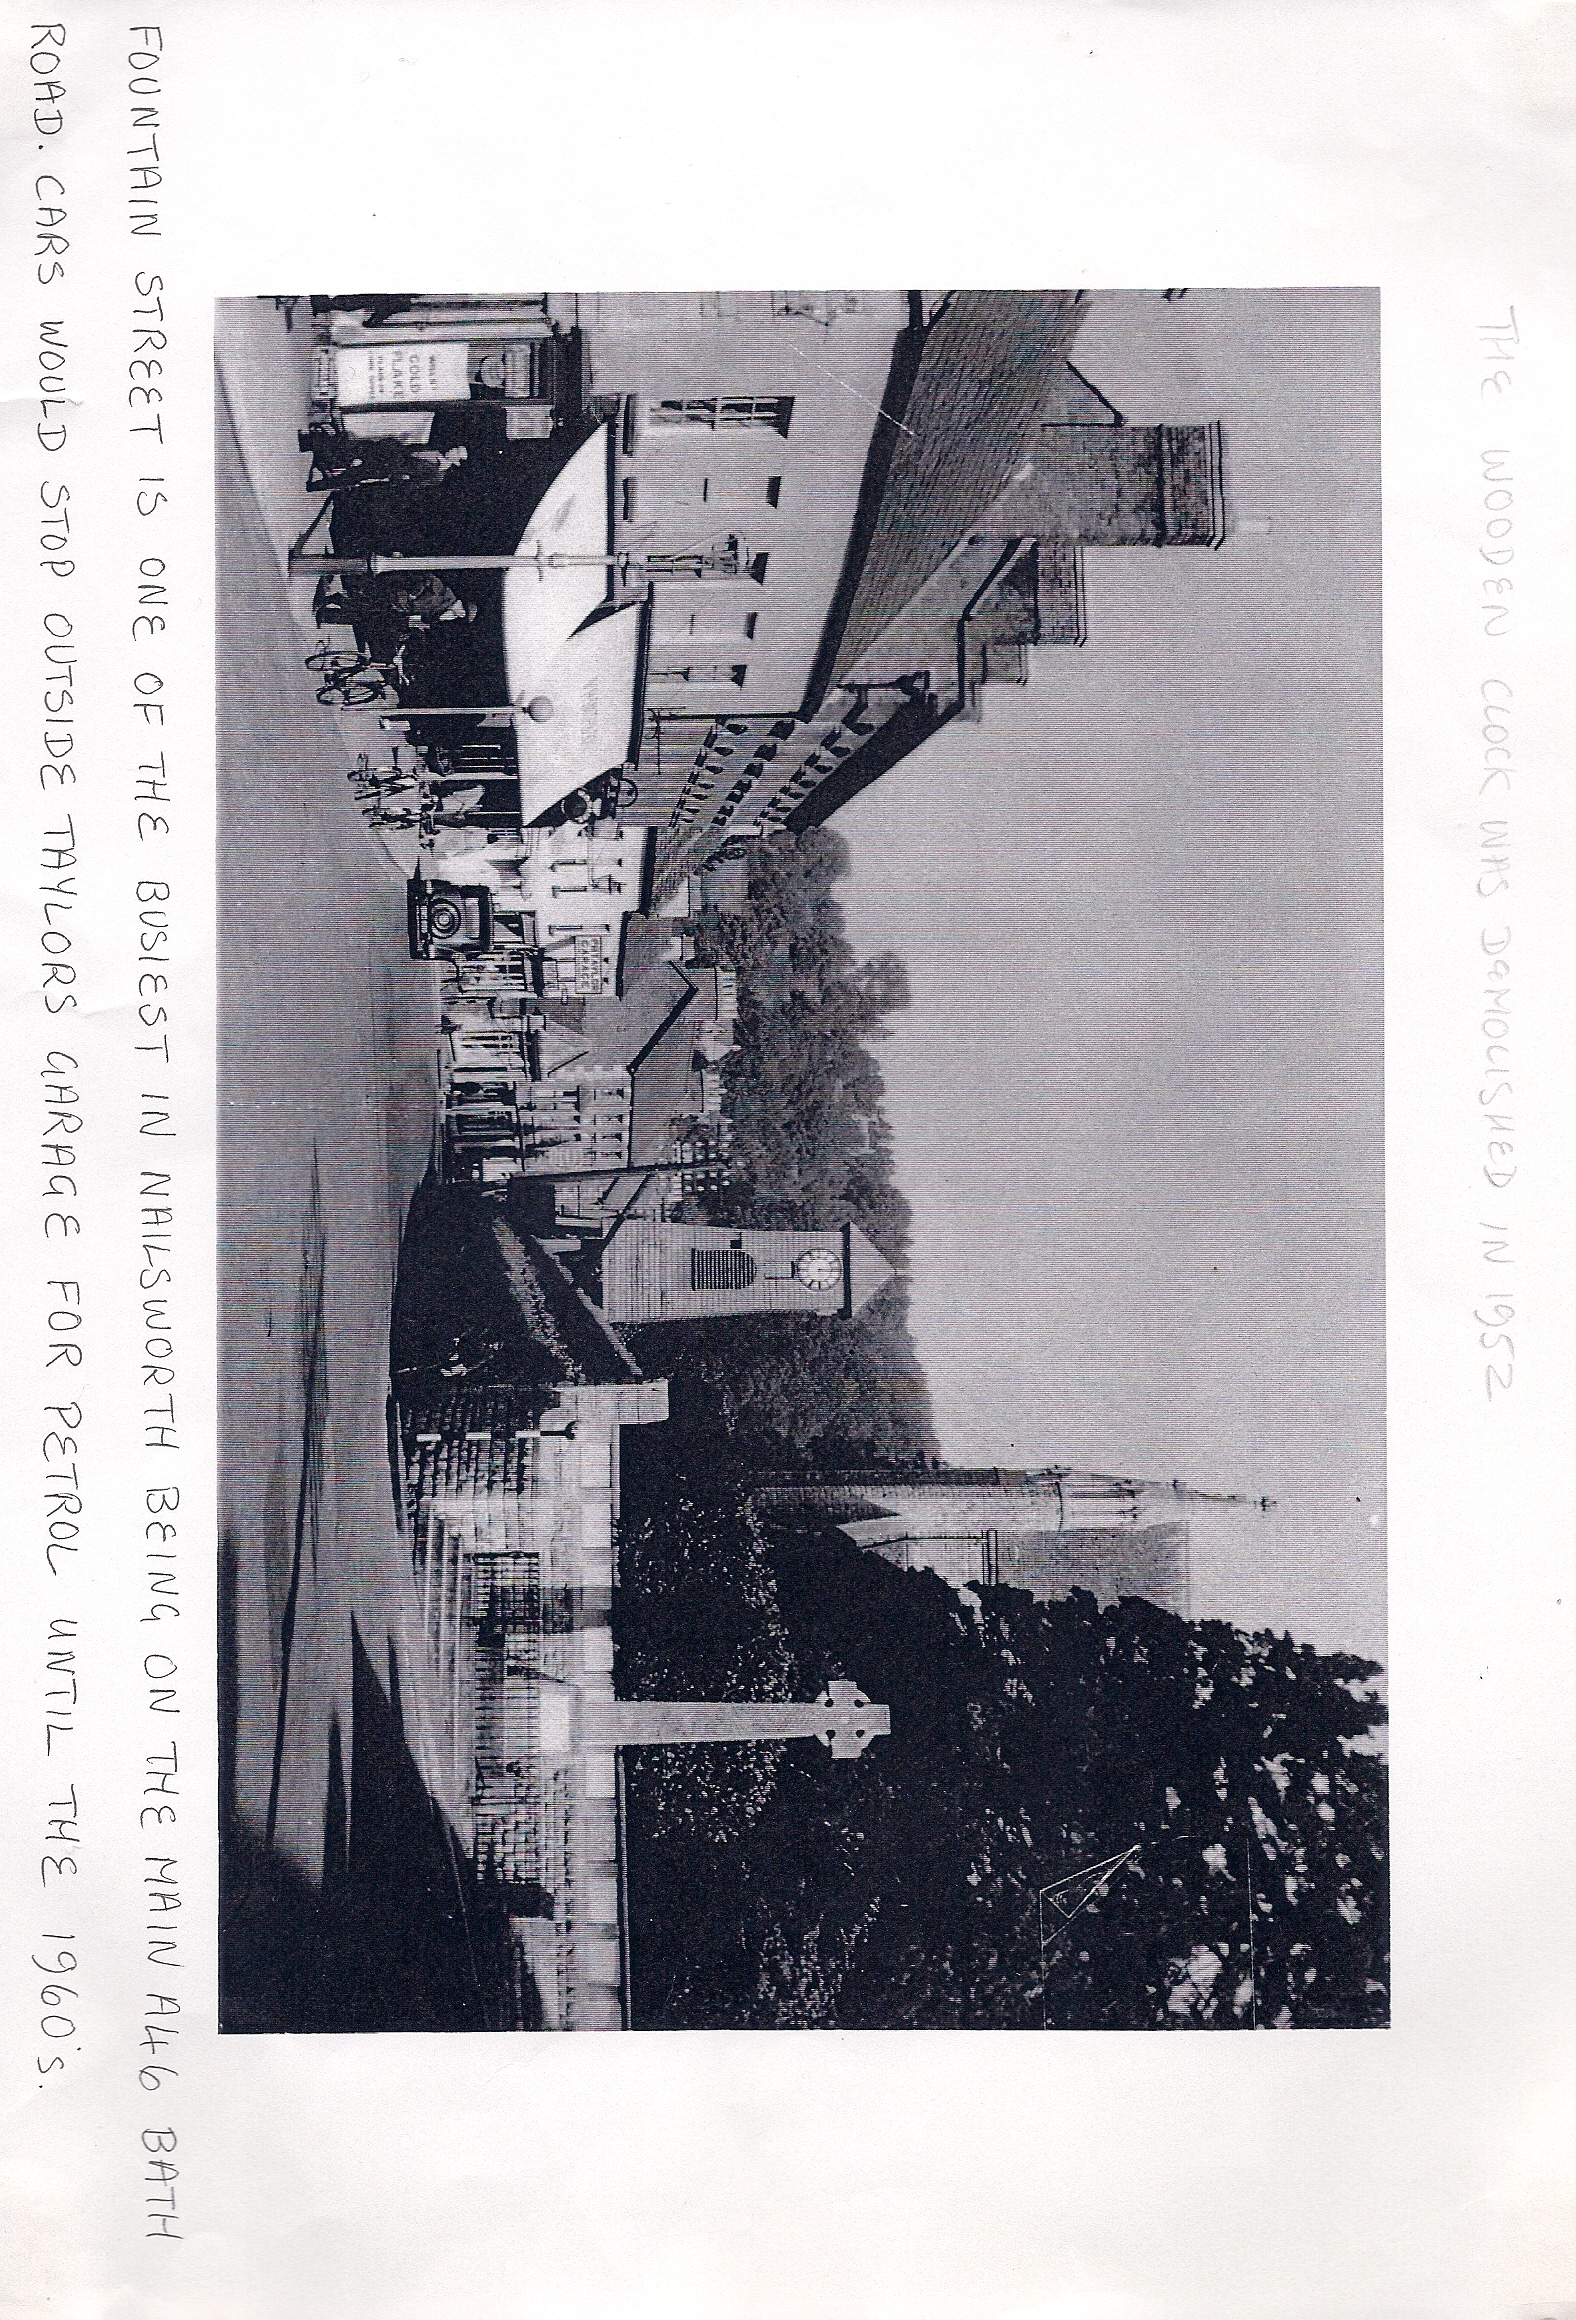 THE WOODEN CLOCK WAS DEMOLISHED IN 1952
WILLS'
GOLD
FLAKE
TAYLOR
GARAGE
FOUNTAIN STREET IS ONE OF THE BUSIEST IN NAILSWORTH BEING ON THE MAIN A46 BATH
ROAD. CARS WOULD STOP OUTSIDE TAYLORS GARAGE FOR PETROL UNTIL THE 1960's.